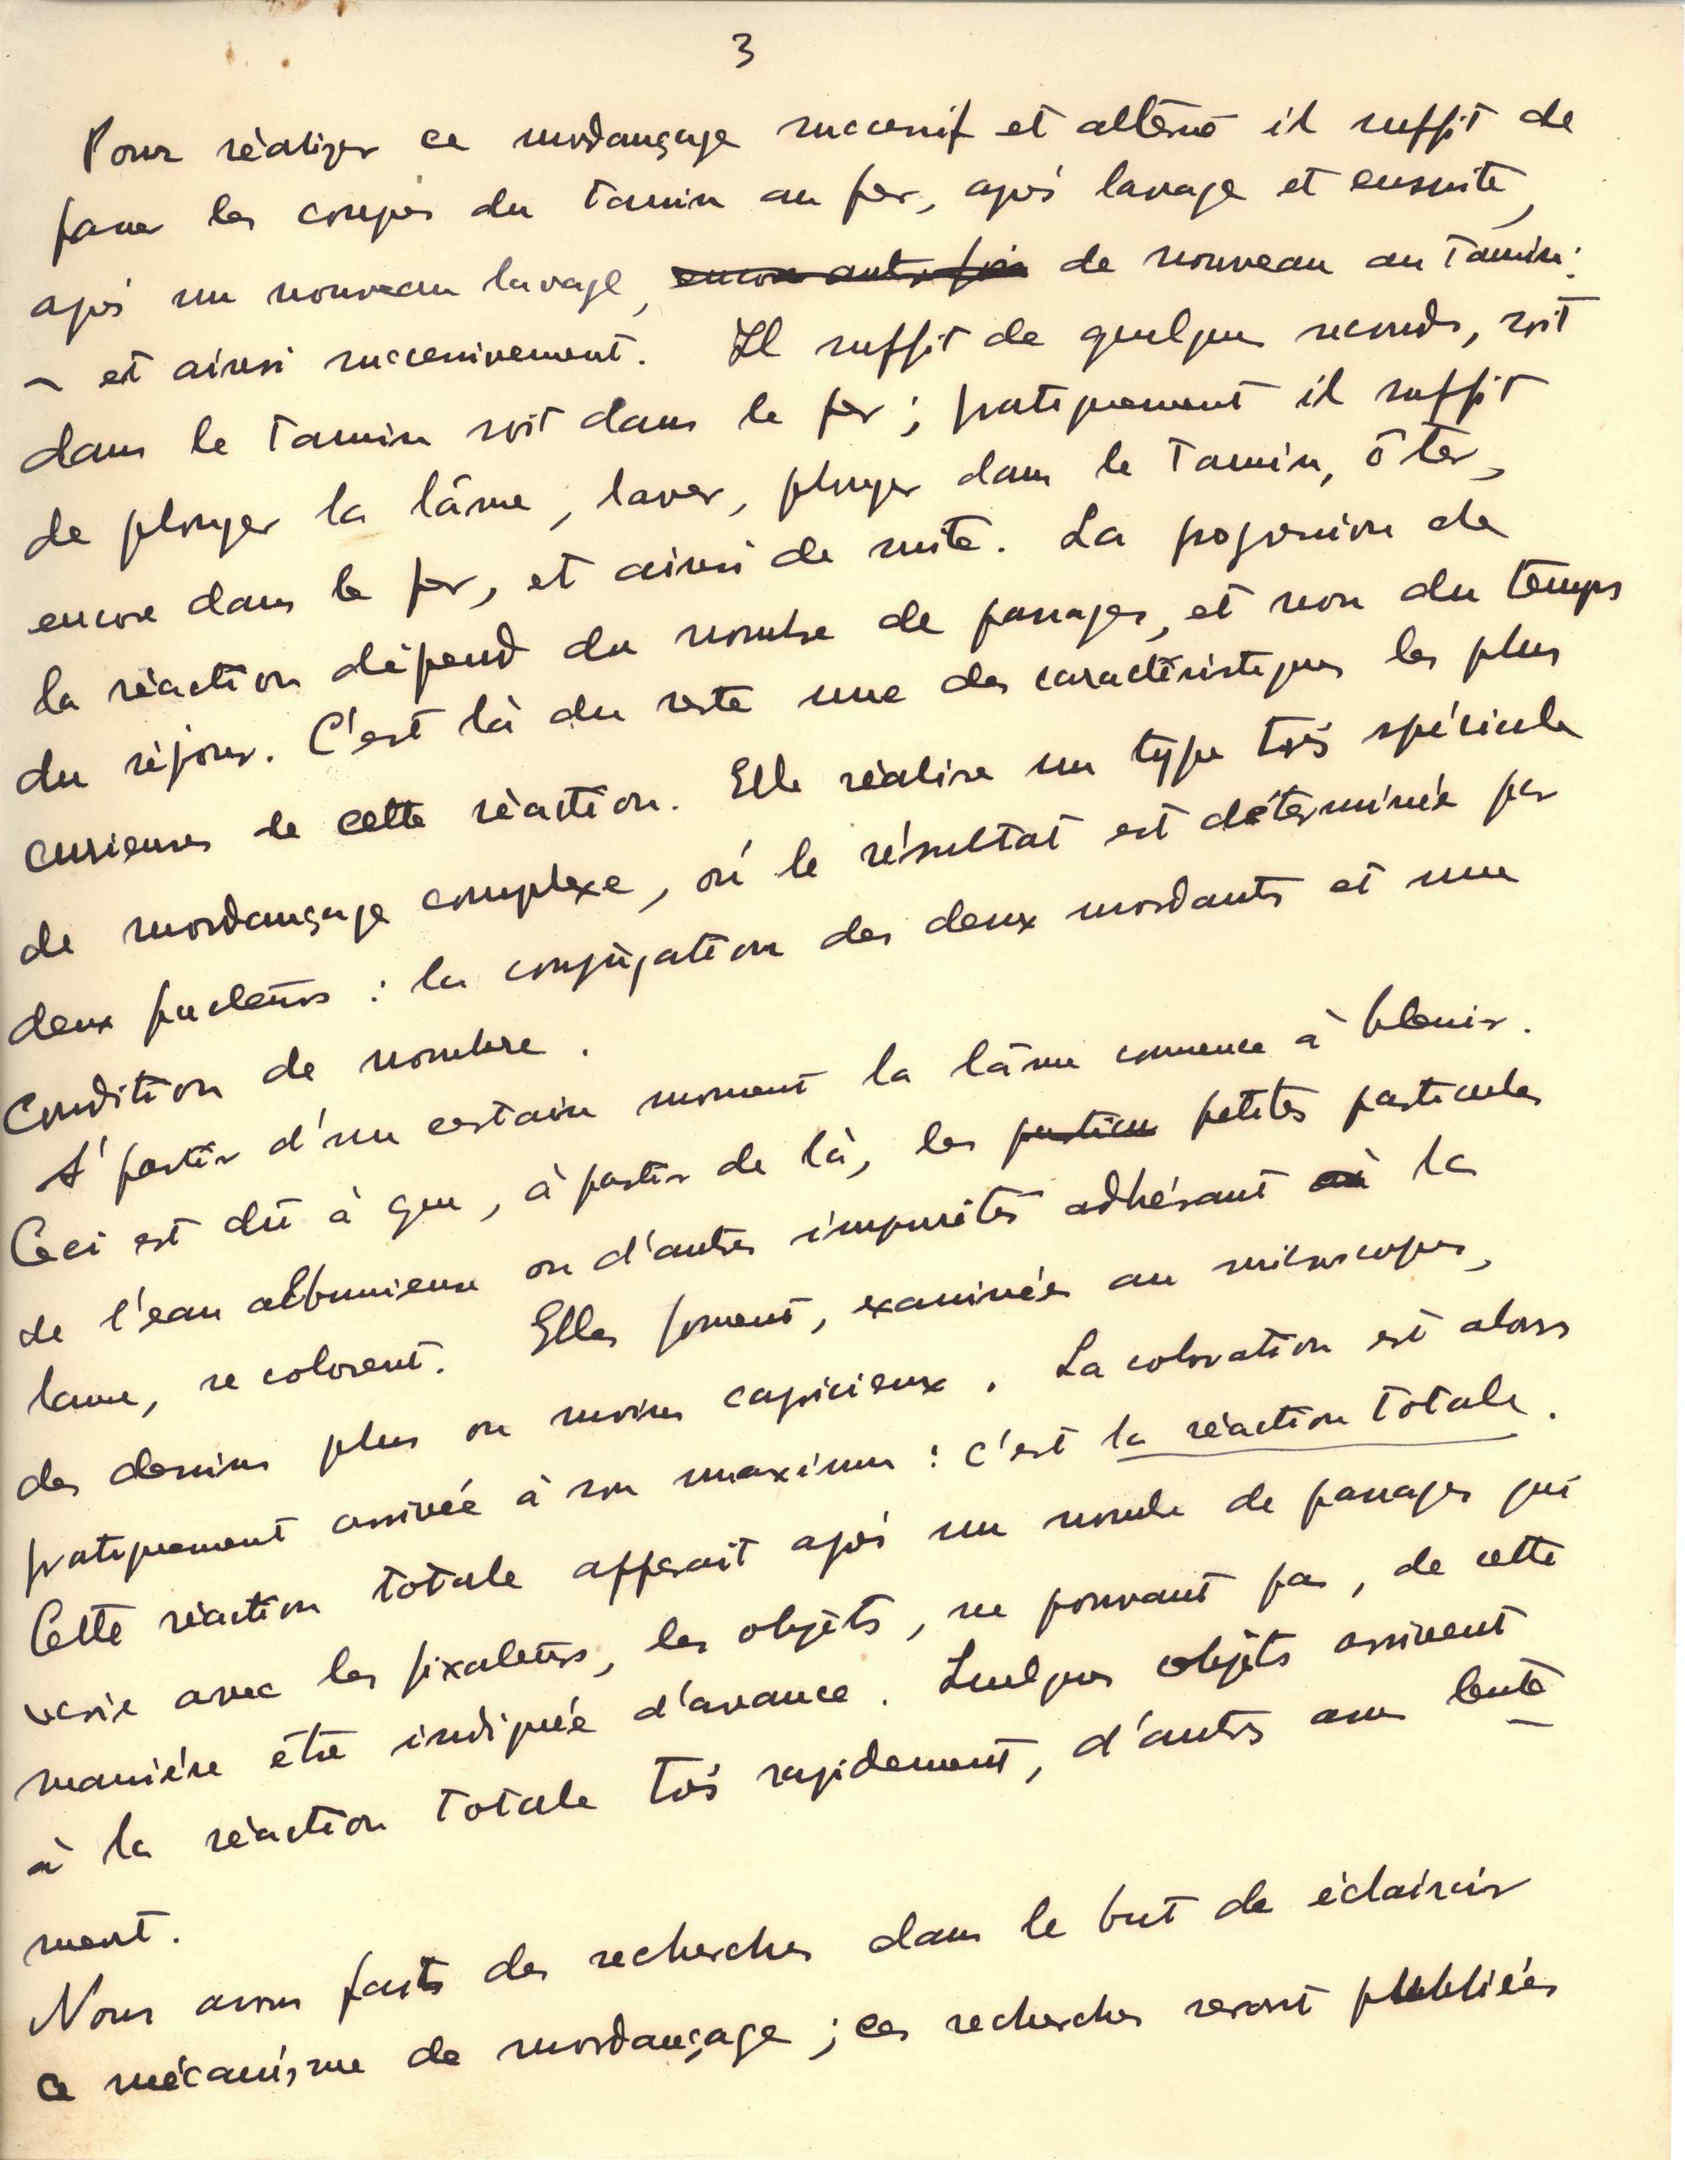 3
Pour réaliser ce mordançage successif et alterné il suffit de
passer les coupes du tannin au fer, après lavage et ensuite,
après un nouveau lavage, encore autre fois de nouveau au tannin:
– et ainsi successivement. Il suffit de quelques seconds, soit
dans le tannin soit dans le fer; pratiquement il suffit
de plonger la lâme, laver, plonger dans le tannin, ôter,
encore dans le fer, et ainsi de suite. La progression de
la réaction dépend du nombre de passages, et non du temps
du séjour. C'est là du reste une des caractéristiques les plus
curieuses de cette réaction. Elle réalise un type très spéciale
de mordançage complexe, où le résultat est déterminée par
deux facteurs : la conjugation des deux mordants et une
condition de nombre.
A' partir d'un certain moment la lâme commence à bleuir.
Ceci est dû à que, à partir de là, les particu petites particules
de l'eau albumieuse ou d'autres impuretés adhérant à la
lame, se colorent. Elles forment, examinées au microscopes,
des dessins plus ou moins capricieux. La coloration est alors
pratiquement arrivée à son maximum : c'est la réaction totale.
Cette réaction totale apperait après un nombre de passages qui
varie avec les fixateurs, les objets, ne pouvant pas, de cette
manière être indiquée d'avance. Quelques objets arrivent
à la réaction totale très rapidement, d'autres assez lente
ment.
Nous avons faits des recherches dans le but de éclaircir
ce mécanisme de mordançage ; ces recherches seront publiées